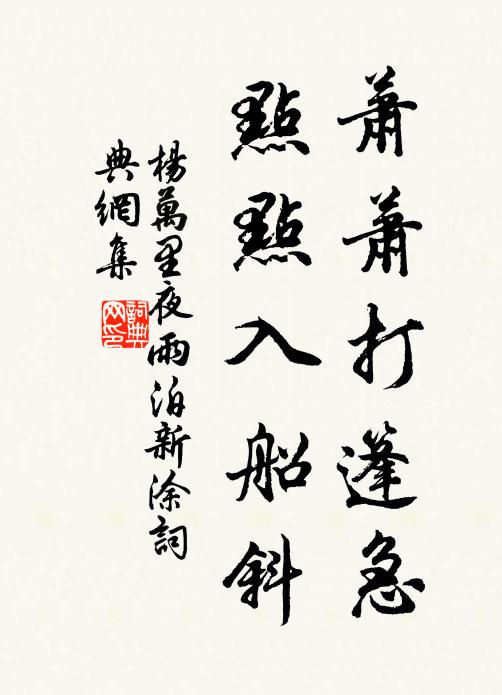 蕭蕭打篷急
點點入船斜
楊萬里夜雨泊新涂詞
典網集
詞典
网印